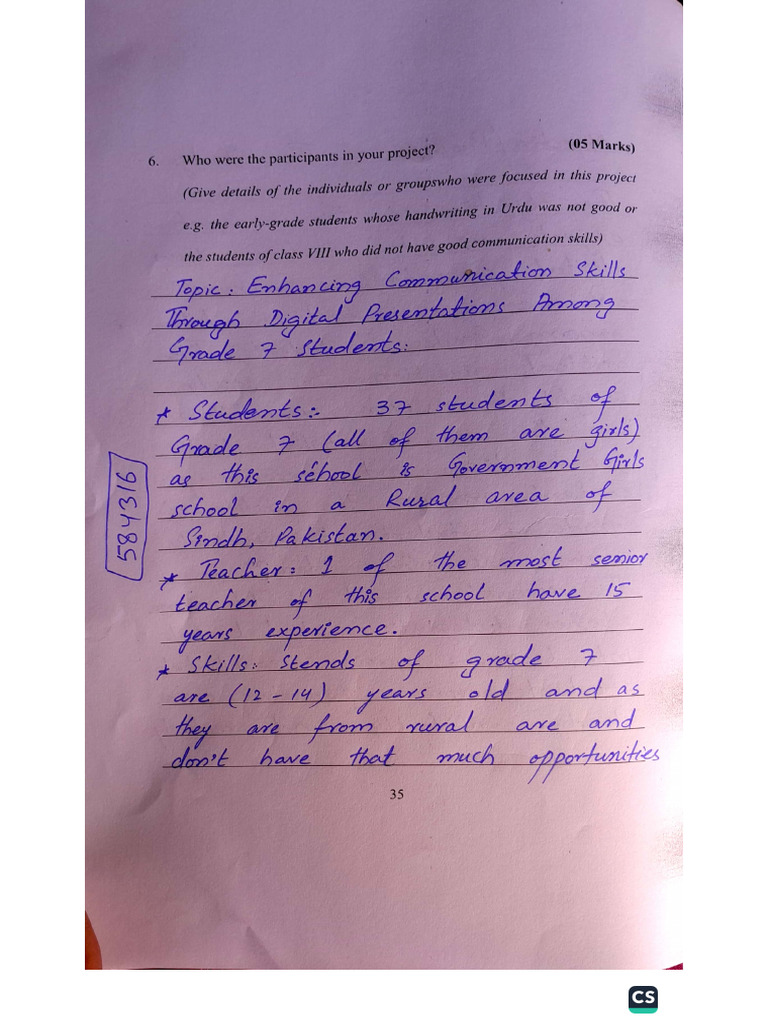 6. Who were the participants in your project? (05 Marks)
(Give details of the individuals or groupswho were focused in this project
e.g. the early-grade students whose handwriting in Urdu was not good or
the students of class VIII who did not have good communication skills)
Topic: Enhancing Communication Skills
Through Digital Presentations Among
Grade 7 Students.
* Students:- 37 students of
Grade 7 (all of them are girls)
as this school is Government Girls
school in a Rural area of
Sindh, Pakistan.
* Teacher: 1 of the most senior
teacher of this school have 15
years experience.
* Skills: Stends of grade 7
are (12-14) years old and as
they are from rural are and
don't have that much opportunities
584316
35
CS